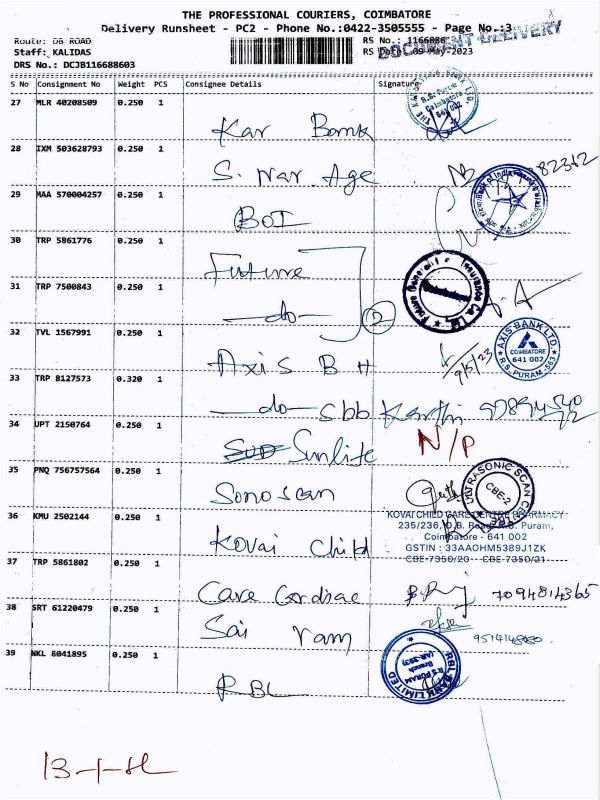 THE PROFESSIONAL COURIERS, COIMBATORE
Delivery Runsheet - PC2 - Phone No.:0422-3505555 - Page No.:3
Route: DB ROAD
RS No.: 1166886
DOCUMENT DELIVERY
Staff: KALIDAS
RS Date: 09-May-2023
DRS No.: DCJB116688603
S No Consignment No Weight PCS Consignee Details Signature
27 MLR 40208509 0.250 1
R.S. Puram
Coimbatore
641 002
Kar Bank
28 IXM 503628793 0.250 1
S. Nar Age
29 MAA 570004257 0.250 1
BOI
30 TRP 5861776 0.250 1
Future
Future Generali Insurance Co. Ltd.
31 TRP 7500843 0.250 1
-do- 2
32 TVL 1567991 0.250 1
AXIS BANK LTD.
COIMBATORE
641 002
R.S. PURAM-563
Axis B H
9/5/23
33 TRP 8127573 0.320 1
-do- Sbb Karthi
34 UPT 2150764 0.250 1
Sunlife N/P
35 PNQ 756757564 0.250 1
Sono Scan
ULTRASONIC SCAN
CBE-2
36 KMU 2502144 0.250 1
KOVAI CHILD CARE CENTRE PHARMACY
235/236, D.B. Road, R.S. Puram,
Coimbatore - 641 002
GSTIN : 33AAOHM5389J1ZK
CBE-7350/20 CBE-7350/21
Kovai Child
37 TRP 5861802 0.250 1
Care Cordiac 7094814365
38 SRT 61220479 0.250 1
Sai ram
39 NKL 6041895 0.250 1
RBL BANK LIMITED
R S PURAM
Branch
(AR-393)
RBL